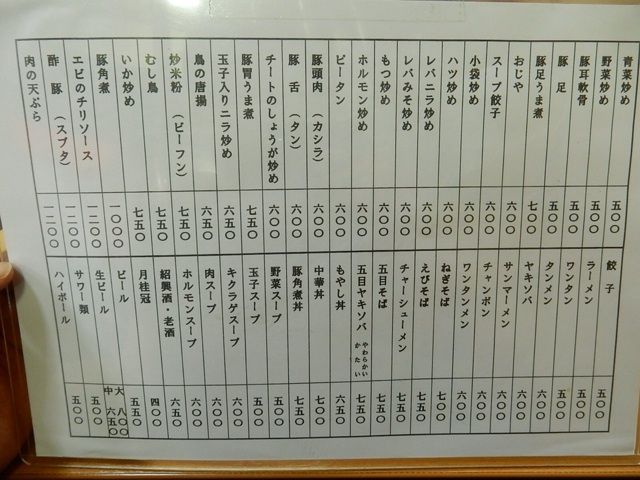 青菜炒め 五〇〇
野菜炒め 五〇〇
豚耳軟骨 五〇〇
豚足 五〇〇
豚足うま煮 七〇〇
おじや 六〇〇
スープ餃子 六〇〇
小袋炒め 六〇〇
ハツ炒め 六〇〇
レバニラ炒め 六〇〇
レバみそ炒め 六〇〇
もつ炒め 六〇〇
ホルモン炒め 六〇〇
ピータン 六〇〇
豚頭肉(カシラ) 六〇〇
豚舌(タン) 六〇〇
チートのしょうが炒め 六〇〇
豚胃うま煮 七五〇
玉子入りニラ炒め 六五〇
鳥の唐揚 六五〇
炒米粉(ビーフン) 七五〇
むし鳥 七五〇
いか炒め 七五〇
豚角煮 一〇〇〇
エビのチリソース 一二〇〇
酢豚(スブタ) 一二〇〇
肉の天ぷら 一二〇〇
餃子 五〇〇
ラーメン 五〇〇
ワンタン 五〇〇
タンメン 六〇〇
ヤキソバ 六〇〇
サンマーメン 六〇〇
チャンポン 六〇〇
ワンタンメン 六〇〇
ねぎそば 七五〇
えびそば 七五〇
チャーシューメン 七五〇
五目そば 七五〇
五目ヤキソバ やわらかい かたい 七五〇
もやし丼 六五〇
中華丼 七〇〇
豚角煮丼 七五〇
野菜スープ 五〇〇
玉子スープ 五五〇
キクラゲスープ 六〇〇
肉スープ 六〇〇
ホルモンスープ 六〇〇
紹興酒・老酒 六五〇
月桂冠 四〇〇
ビール 五五〇
生ビール 大 八〇〇 中 六五〇
サワー類 五〇〇
ハイボール 五〇〇